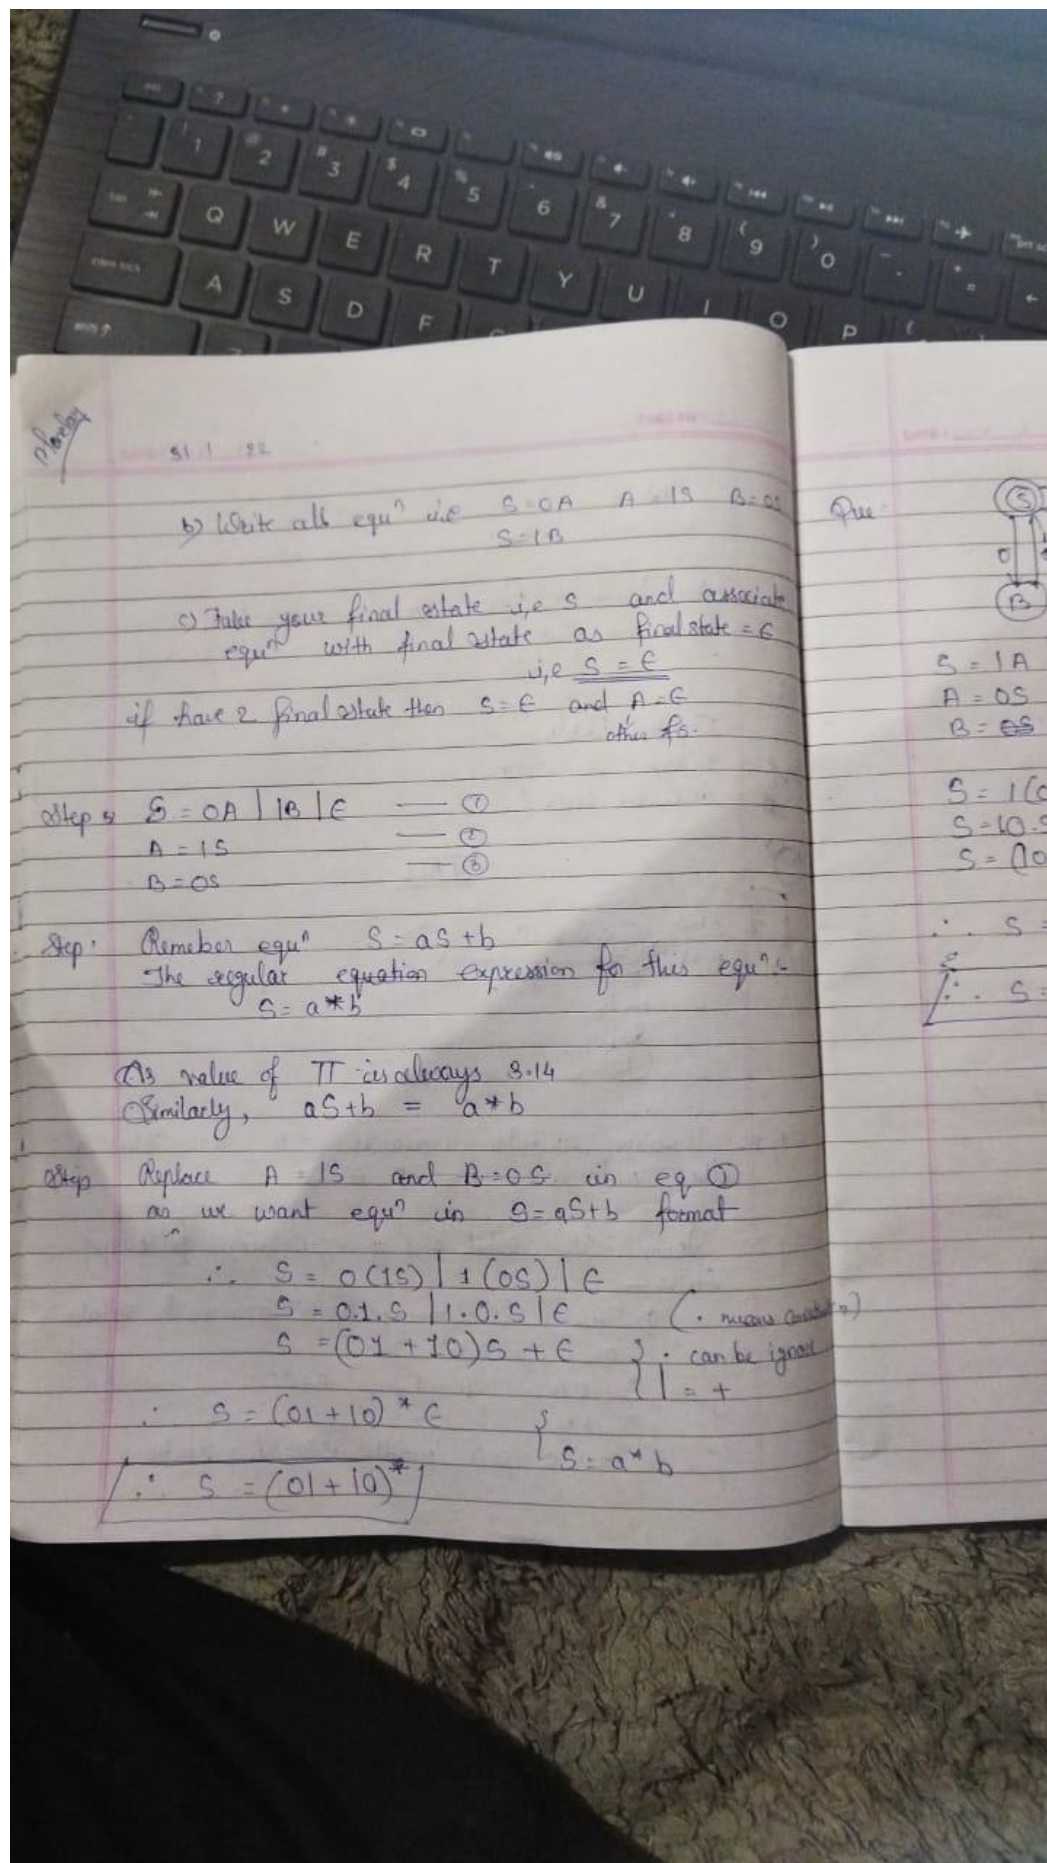 1 2 3 4 5 6 7 8 9 0
Q W E R T Y U I O P
A S D F
Monday
31 1 22
b) Write all equⁿ i,e S=0A A=1S B=0S
S=1B
c) Take your final state i,e S and associate
equⁿ with final state as final state = ϵ
i,e S = ϵ
if have 2 final state then S=ϵ and A=ϵ
other fs.
Step S = 0A | 1B | ϵ —— ①
A = 1S —— ②
B = 0S —— ③
Step: Remeber equⁿ S = aS + b
The regular equation expression for this equⁿ:-
S = a*b
As value of π is always 3.14
Similarly, aS+b = a*b
Step Replace A = 1S and B=0S in eq ①
as we want equⁿ in S=aS+b format
∴ S = 0(1S) | 1(0S) | ϵ
S = 0.1.S | 1.0.S | ϵ (. means
S = (01 + 10)S + ϵ } . can be ignore
| = +
∴ S = (01+10)* ϵ
S = a*b
∴ S = (01+10)*
Que:
S
0
B
S = 1A
A = 0S
B =
S = 1(
S = 10.S
S = (10
∴ S =
∴ S =